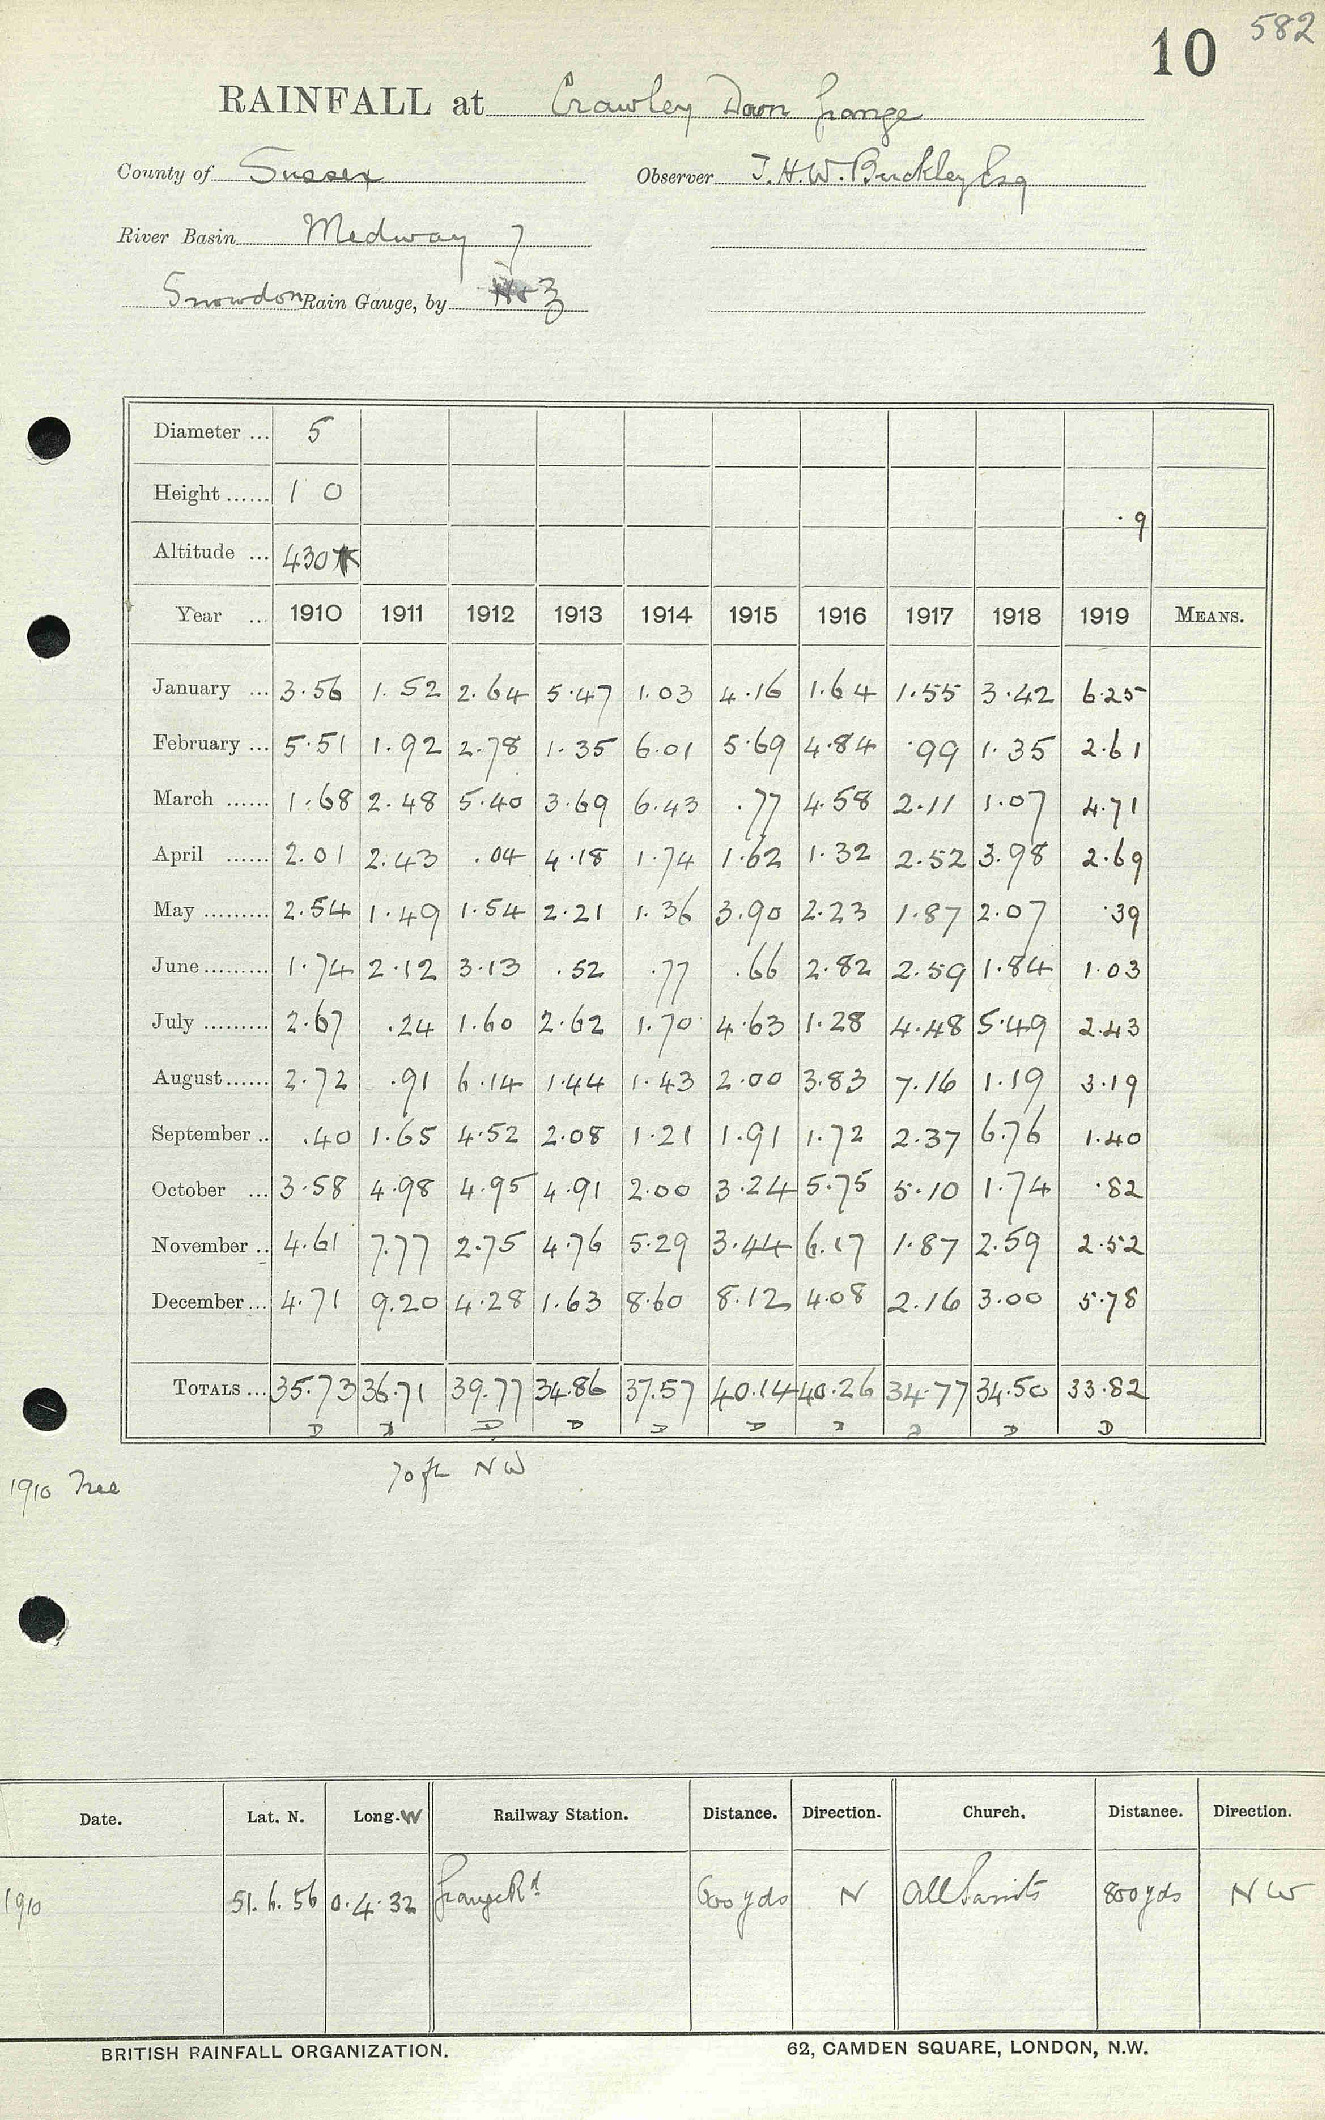 582
10
RAINFALL at Crawley Down Grange
County of Sussex Observer J. H. W. Buckley Esq
River Basin Medway 7
Snowdon Rain Gauge, by 3
Diameter ... 5
Height ...... 1 0
.9
Altitude ... 430
Year ... 1910 1911 1912 1913 1914 1915 1916 1917 1918 1919 MEANS.
January ... 3.56 1.52 2.64 5.47 1.03 4.16 1.64 1.55 3.42 6.25
February ... 5.51 1.92 2.78 1.35 6.01 5.69 4.84 .99 1.35 2.61
March ...... 1.68 2.48 5.40 3.69 6.43 .77 4.58 2.11 1.07 4.71
April ...... 2.01 2.43 .04 4.18 1.74 1.62 1.32 2.52 3.98 2.69
May ......... 2.54 1.49 1.54 2.21 1.36 3.90 2.23 1.87 2.07 .39
June ......... 1.74 2.12 3.13 .52 .77 .66 2.82 2.59 1.84 1.03
July ......... 2.67 .24 1.60 2.62 1.70 4.63 1.28 4.48 5.49 2.43
August ...... 2.72 .91 6.14 1.44 1.43 2.00 3.83 7.16 1.19 3.19
September .. .40 1.65 4.52 2.08 1.21 1.91 1.72 2.37 6.76 1.40
October ... 3.58 4.98 4.95 4.91 2.00 3.24 5.75 5.10 1.74 .82
November .. 4.61 7.77 2.75 4.76 5.29 3.44 6.17 1.87 2.59 2.52
December ... 4.71 9.20 4.28 1.63 8.60 8.12 4.08 2.16 3.00 5.78
TOTALS ... 35.73 36.71 39.77 34.86 37.57 40.14 40.26 34.77 34.50 33.82
D D D D D D D D D D
1910 Tree 70 ft NW
Date. Lat. N. Long. W Railway Station. Distance. Direction. Church. Distance. Direction.
1910 51. 6. 56 0. 4. 32 Grange Rd 600 yds N All Saints 800 yds NW
BRITISH RAINFALL ORGANIZATION. 62, CAMDEN SQUARE, LONDON, N.W.